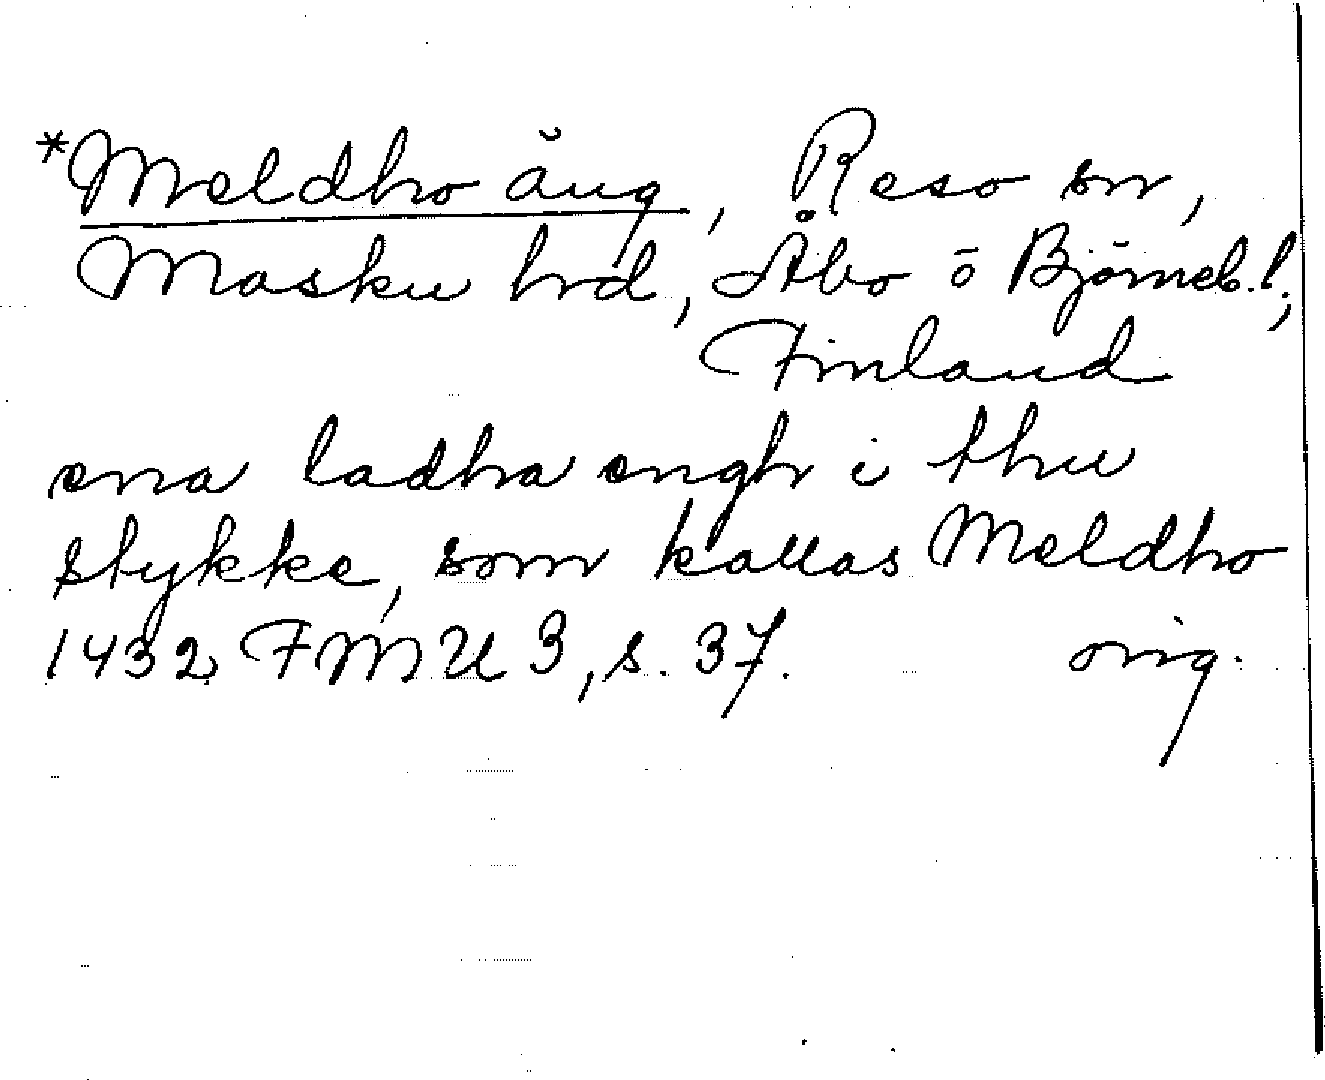 *Meldho äng, Reso sn,
Masku hrd, Åbo o Björneb. l.,
Finland
ena ladha engh i thu
stykke, som kallas Meldho
1432 FMU 3, s. 37. orig.